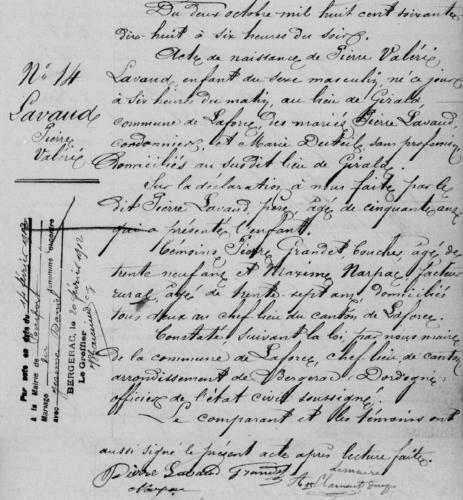 Du deux octobre mil huit cent soixante
dix-huit à six heures du soir.
Acte de naissance de Pierre Valérie
Lavaud, enfant du sexe masculin né ce jour
à six heures du matin, au lieu de Girald
commune de Laforce, des mariés Pierre Lavaud,
cordonnier, et Marie Duteuil sans profession
Domiciliés au susdit lieu de Girald.
Sur la déclaration à nous faite par le
dit Pierre Lavaud, père, âgé de cinquante ans
qui a présenté l'enfant.
Témoins, Pierre Grandet, âgé de
trente neuf ans et Maxime facteur
rural, âgé de trente-sept ans, domiciliés
tous deux au chef lieu du canton de Laforce.
Constaté suivant la loi par nous maire
de la commune de Laforce, chef lieu de canton
arrondissement de Bergerac, Dordogne,
officier de l'état civil soussigné.
Le comparant et les témoins ont
aussi signé le présent acte après lecture faite
Pierre Lavaud Grandet
le maire
N° 14
Lavaud
Pierre
Valérie
Par acte en date du
à la Mairie de
Mariage du
avec
BERGERAC, le 20 février 1912
Le Greffier,